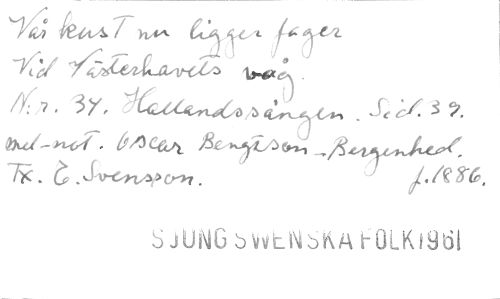 Vår kust nu ligger fager
Vid Västerhavets våg.
N:r. 34. Hallandssången. Sid. 39.
med-not. Oscar Bengtson-Bergenhed.
Tx. E. Svensson. f. 1886.
SJUNG SWENSKA FOLK 1961